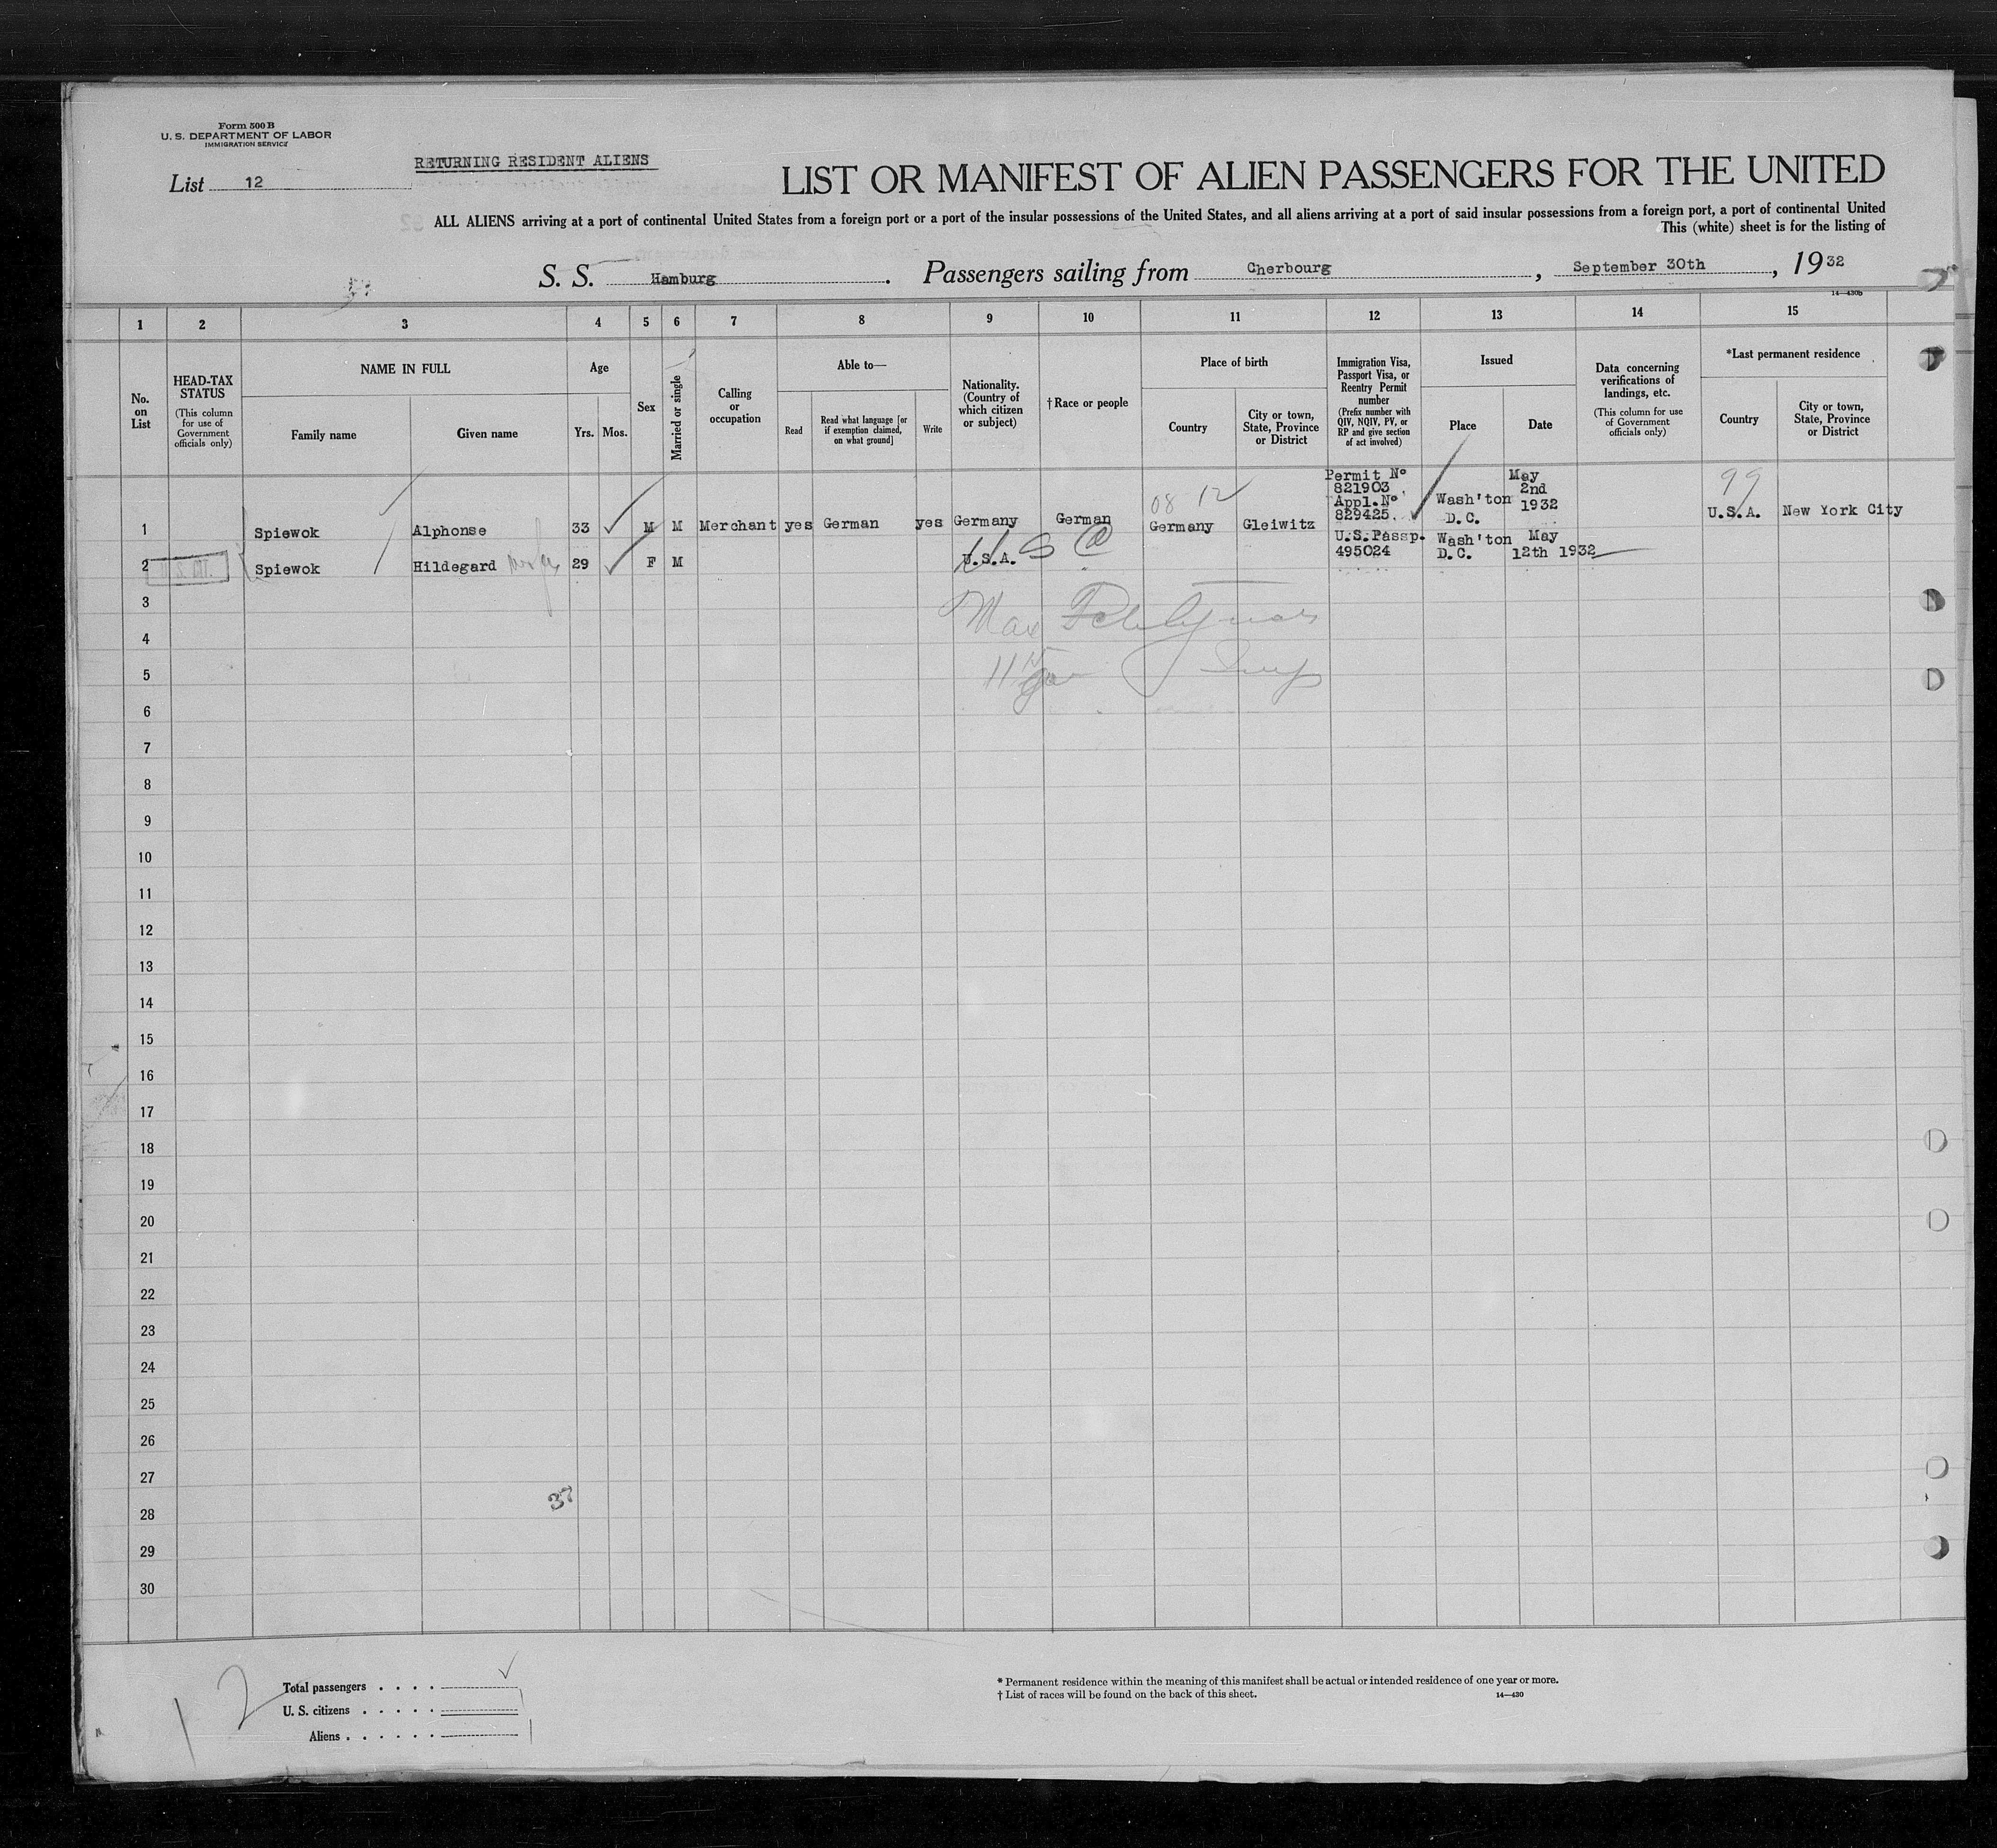 Form 500 B
U. S. DEPARTMENT OF LABOR
IMMIGRATION SERVICE
RETURNING RESIDENT ALIENS
List 12
LIST OR MANIFEST OF ALIEN PASSENGERS FOR THE UNITED
ALL ALIENS arriving at a port of continental United States from a foreign port or a port of the insular possessions of the United States, and all aliens arriving at a port of said insular possessions from a foreign port, a port of continental United
This (white) sheet is for the listing of
S. S. Hamburg. Passengers sailing from Cherbourg, September 30th, 1932
14—430b
1 2 3 4 5 6 7 8 9 10 11 12 13 14 15
No. on List
HEAD-TAX STATUS
(This column for use of Government officials only)
NAME IN FULL
Family name
Given name
Age
Yrs. Mos.
Sex
Married or single
Calling or occupation
Able to—
Read
Read what language [or if exemption claimed, on what ground]
Write
Nationality. (Country of which citizen or subject)
†Race or people
Place of birth
Country
City or town, State, Province or District
Immigration Visa, Passport Visa, or Reentry Permit number
(Prefix number with QIV, NQIV, PV, or RP and give section of act involved)
Issued
Place
Date
Data concerning verifications of landings, etc.
(This column for use of Government officials only)
*Last permanent residence
Country
City or town, State, Province or District
08 12
99
1 Spiewok Alphonse 33 M M Merchant yes German yes Germany German Germany Gleiwitz Permit No 821903 Appl.No 829425. Wash'ton D.C. May 2nd 1932 U.S.A. New York City
2 Spiewok Hildegard 29 F M U.S.A. U.S.Passp. 495024 Wash'ton D.C. May 12th 1932
3
4
5
6
7
8
9
10
11
12
13
14
15
16
17
18
19
20
21
22
23
24
25
26
27
37
28
29
30
12
Total passengers
U. S. citizens
Aliens
* Permanent residence within the meaning of this manifest shall be actual or intended residence of one year or more.
† List of races will be found on the back of this sheet.
14—430